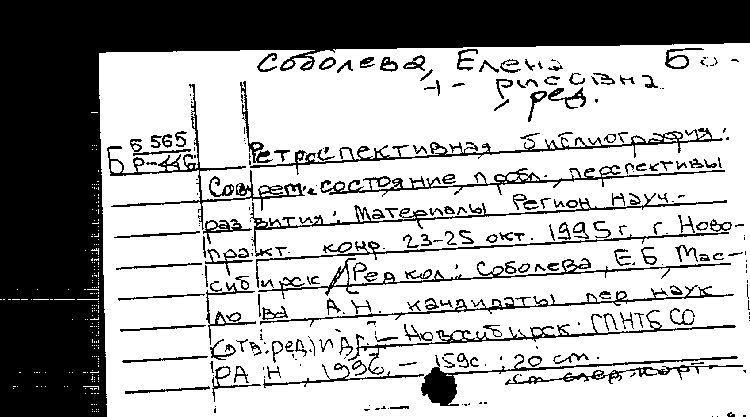 Соболева, Елена Бо-
рисовна
, ред.
Б 5 565
Р-446
Ретроспективная библиография:
Соврем. состояние, пробл., перспективы
развития: Материалы Регион. науч.-
практ. конф. 23-25 окт. 1995 г., г. Ново-
сибирск / [Редкол.: Соболева, Е.Б., Мас-
лова, А.Н., кандидаты пед. наук
(отв. ред.) и др.] – Новосибирск: ГПНТБ СО
РАН, 1996. – 159с.; 20 см.
См. след. карт.